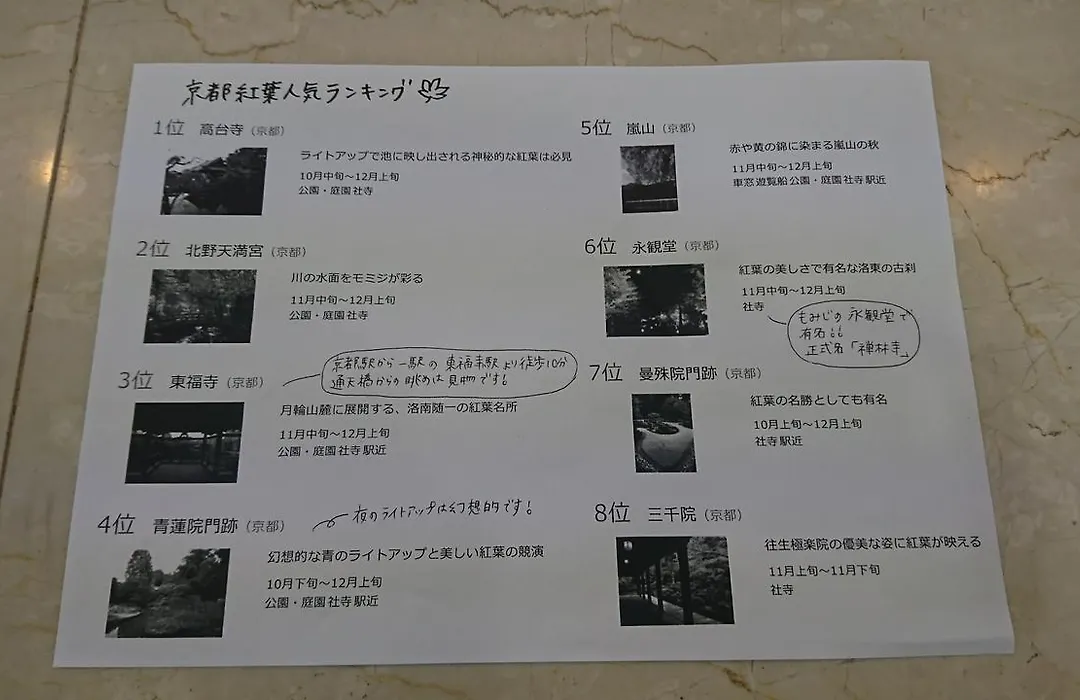 京都紅葉人気ランキング
1位 高台寺（京都）
ライトアップで池に映し出される神秘的な紅葉は必見
10月中旬～12月上旬
公園・庭園 社寺
2位 北野天満宮（京都）
川の水面をモミジが彩る
11月中旬～12月上旬
公園・庭園 社寺
京都駅から一駅の東福寺駅より徒歩10分
通天橋からの眺めは見物です!
3位 東福寺（京都）
月輪山麓に展開する、洛南随一の紅葉名所
11月中旬～12月上旬
公園・庭園 社寺 駅近
夜のライトアップは幻想的です!
4位 青蓮院門跡（京都）
幻想的な青のライトアップと美しい紅葉の競演
10月下旬～12月上旬
公園・庭園 社寺 駅近
5位 嵐山（京都）
赤や黄の錦に染まる嵐山の秋
11月中旬～12月上旬
車窓 遊覧船 公園・庭園 社寺 駅近
6位 永観堂（京都）
紅葉の美しさで有名な洛東の古刹
11月中旬～12月上旬
社寺
もみじの永観堂で
有名!!
正式名「禅林寺」
7位 曼殊院門跡（京都）
紅葉の名勝としても有名
10月上旬～12月上旬
社寺 駅近
8位 三千院（京都）
往生極楽院の優美な姿に紅葉が映える
11月上旬～11月下旬
社寺